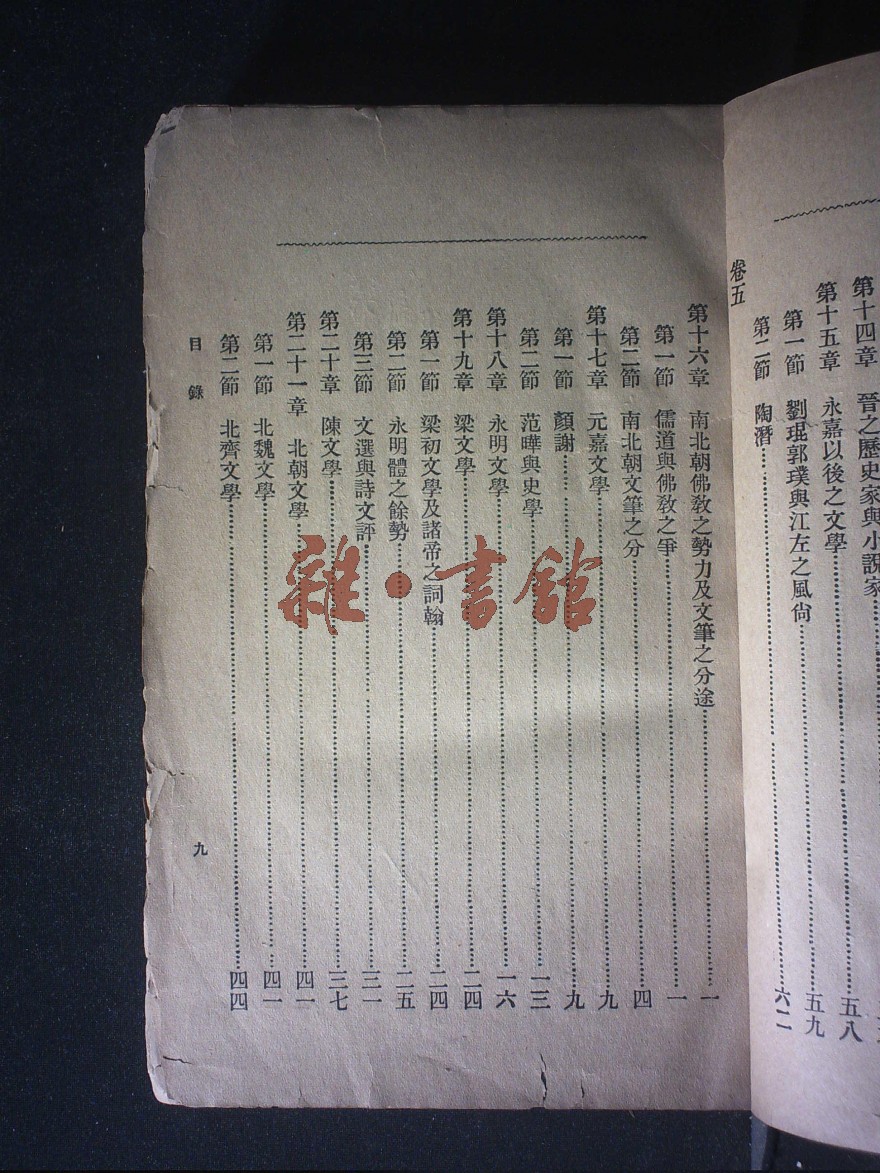 第十四章　晉之歷史家與小說家
第十五章　永嘉以後之文學……五八
第一節　劉琨郭璞與江左之風尙……五九
第二節　陶潛……六二
卷五
第十六章　南北朝佛敎之勢力及文筆之分途……一
第一節　儒道與佛敎之爭……一
第二節　南北朝文筆之分……四
第十七章　元嘉文學……九
第一節　顏謝……九
第二節　范曄與史學……一三
第十八章　永明文學……一六
第十九章　梁文學……二四
第一節　梁初文學及諸帝之詞翰……二四
第二節　永明體之餘勢……二五
第三節　文選與詩文評……三一
第二十章　陳文學……三七
第二十一章　北朝文學……四一
第一節　北魏文學……四一
第二節　北齊文學……四四
目錄
九
雜·書館